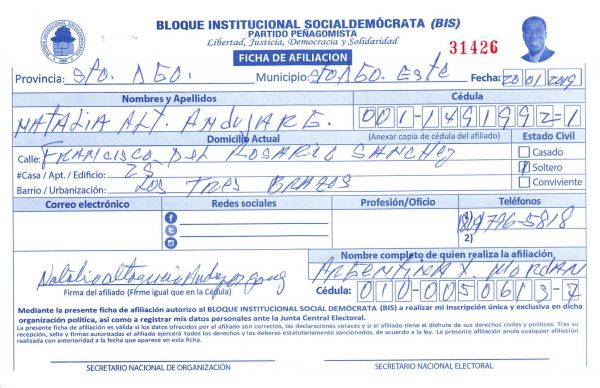 BLOQUE INSTITUCIONAL SOCIALDEMÓCRATA (BIS)
PARTIDO PEÑAGOMISTA
Libertad, Justicia, Democracia y Solidaridad
31426
FICHA DE AFILIACION
Provincia: Sto. Dgo. Municipio: Sto Dgo. Este Fecha: 20 01 2019
Nombres y Apellidos Cédula
NATALIA ALT. ANDUJAR E. 001-1491992-1
Domicilio Actual (Anexar copia de cédula del afiliado) Estado Civil
Calle: FRANCISCO DEL ROSARIO SANCHEZ Casado
#Casa / Apt. / Edificio: 25 Soltero
Barrio / Urbanización: LOS TRES BRAZOS Conviviente
Correo electrónico Redes sociales Profesión/Oficio Teléfonos
1) (809) 796-5818
2)
Nombre completo de quien realiza la afiliación
ARGENTINA X. MORDAN
Firma del afiliado (Firme igual que en la Cédula) Cédula: 010-0050613-7
Mediante la presente ficha de afiliación autorizo al BLOQUE INSTITUCIONAL SOCIAL DEMÓCRATA (BIS) a realizar mi inscripción única y exclusiva en dicha
organización política, así como a registrar mis datos personales ante la Junta Central Electoral.
La presente ficha de afiliación es válida si los datos ofrecidos por el afiliado son correctos, las declaraciones veraces y si el afiliado tiene el disfrute de sus derechos civiles y políticos. Tras su
recepción, sello y firmas autorizadas el afiliado ejercerá todos los derechos y los deberes estatutariamente sancionados, de acuerdo a la ley. La presente afiliación anula cualquier afiliación
realizada con anterioridad a la fecha que aparece en esta ficha.
SECRETARIO NACIONAL DE ORGANIZACIÓN SECRETARIO NACIONAL ELECTORAL